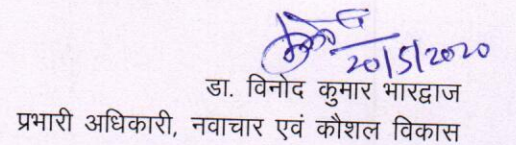 20/5/2020
डा. विनोद कुमार भारद्वाज
प्रभारी अधिकारी, नवाचार एवं कौशल विकास